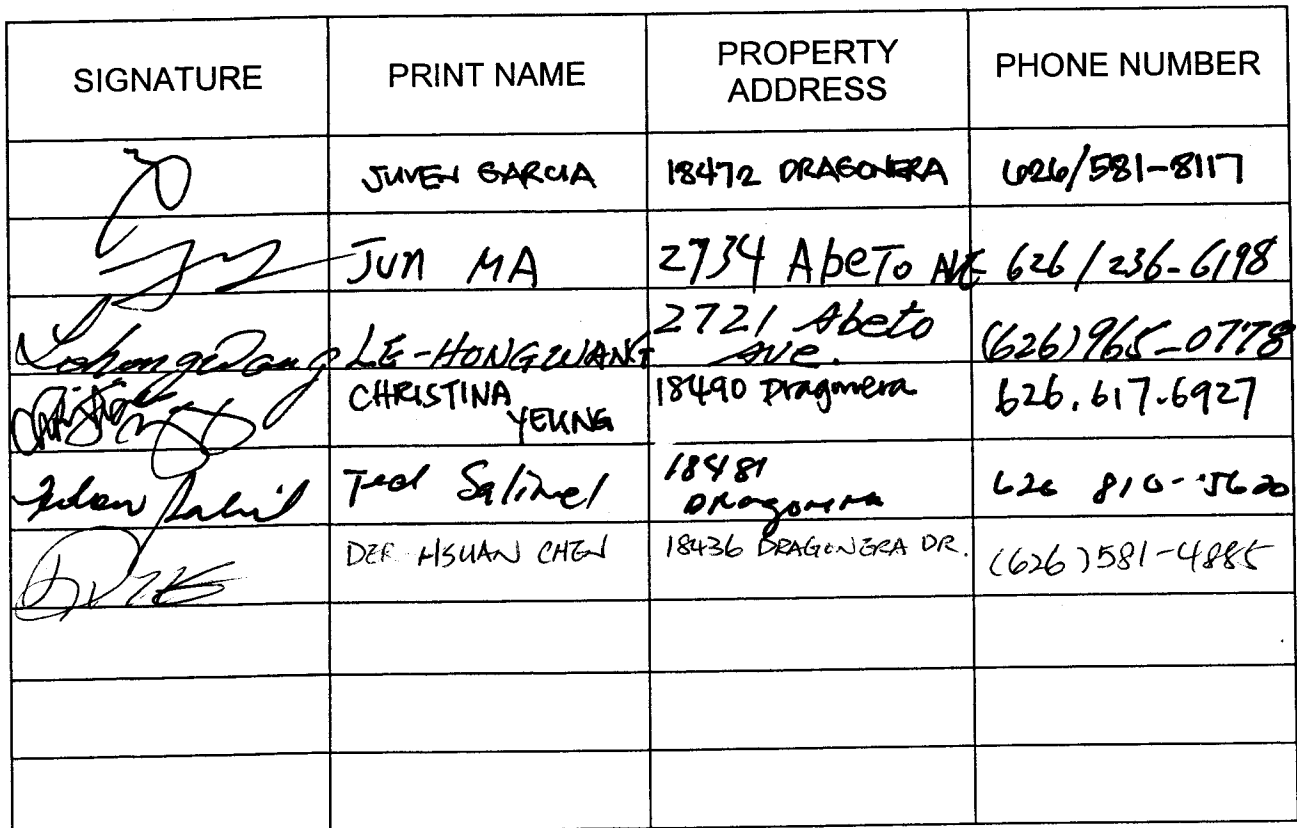 SIGNATURE PRINT NAME PROPERTY ADDRESS PHONE NUMBER
JUVEN GARCIA 18472 DRAGONERA 626/581-8117
JUN MA 2734 Abeto AVE 626/236-6198
Lehongwang LE-HONG WANG 2721 Abeto Ave. (626)965-0778
Christina CHRISTINA YEUNG 18490 Dragonera 626.617.6927
Ted 18481 Dragonera 626 810-5620
DER HSUAN CHEN 18436 DRAGONERA DR. (626)581-4885